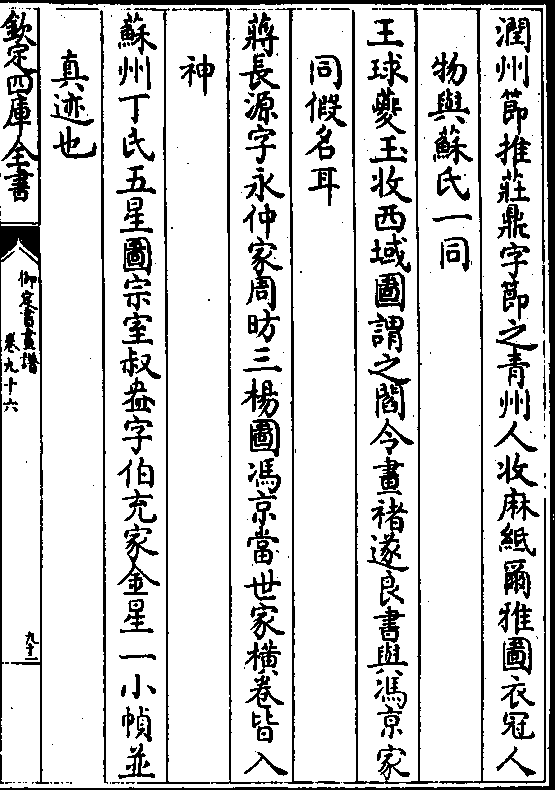 潤州節推莊鼎字節之青州人收麻紙爾雅圖衣冠人
物與蘇氏一同
王球夔玉收西域圖謂之閻令畫褚遂良書與馮京家
同假名耳
蔣長源字永仲家周昉三楊圖馮京當世家橫卷皆入
神
蘇州丁氏五星圖宗室叔盎字伯充家金星一小幀並
真迹也
欽定四庫全書
御定書畫譜
卷九十六